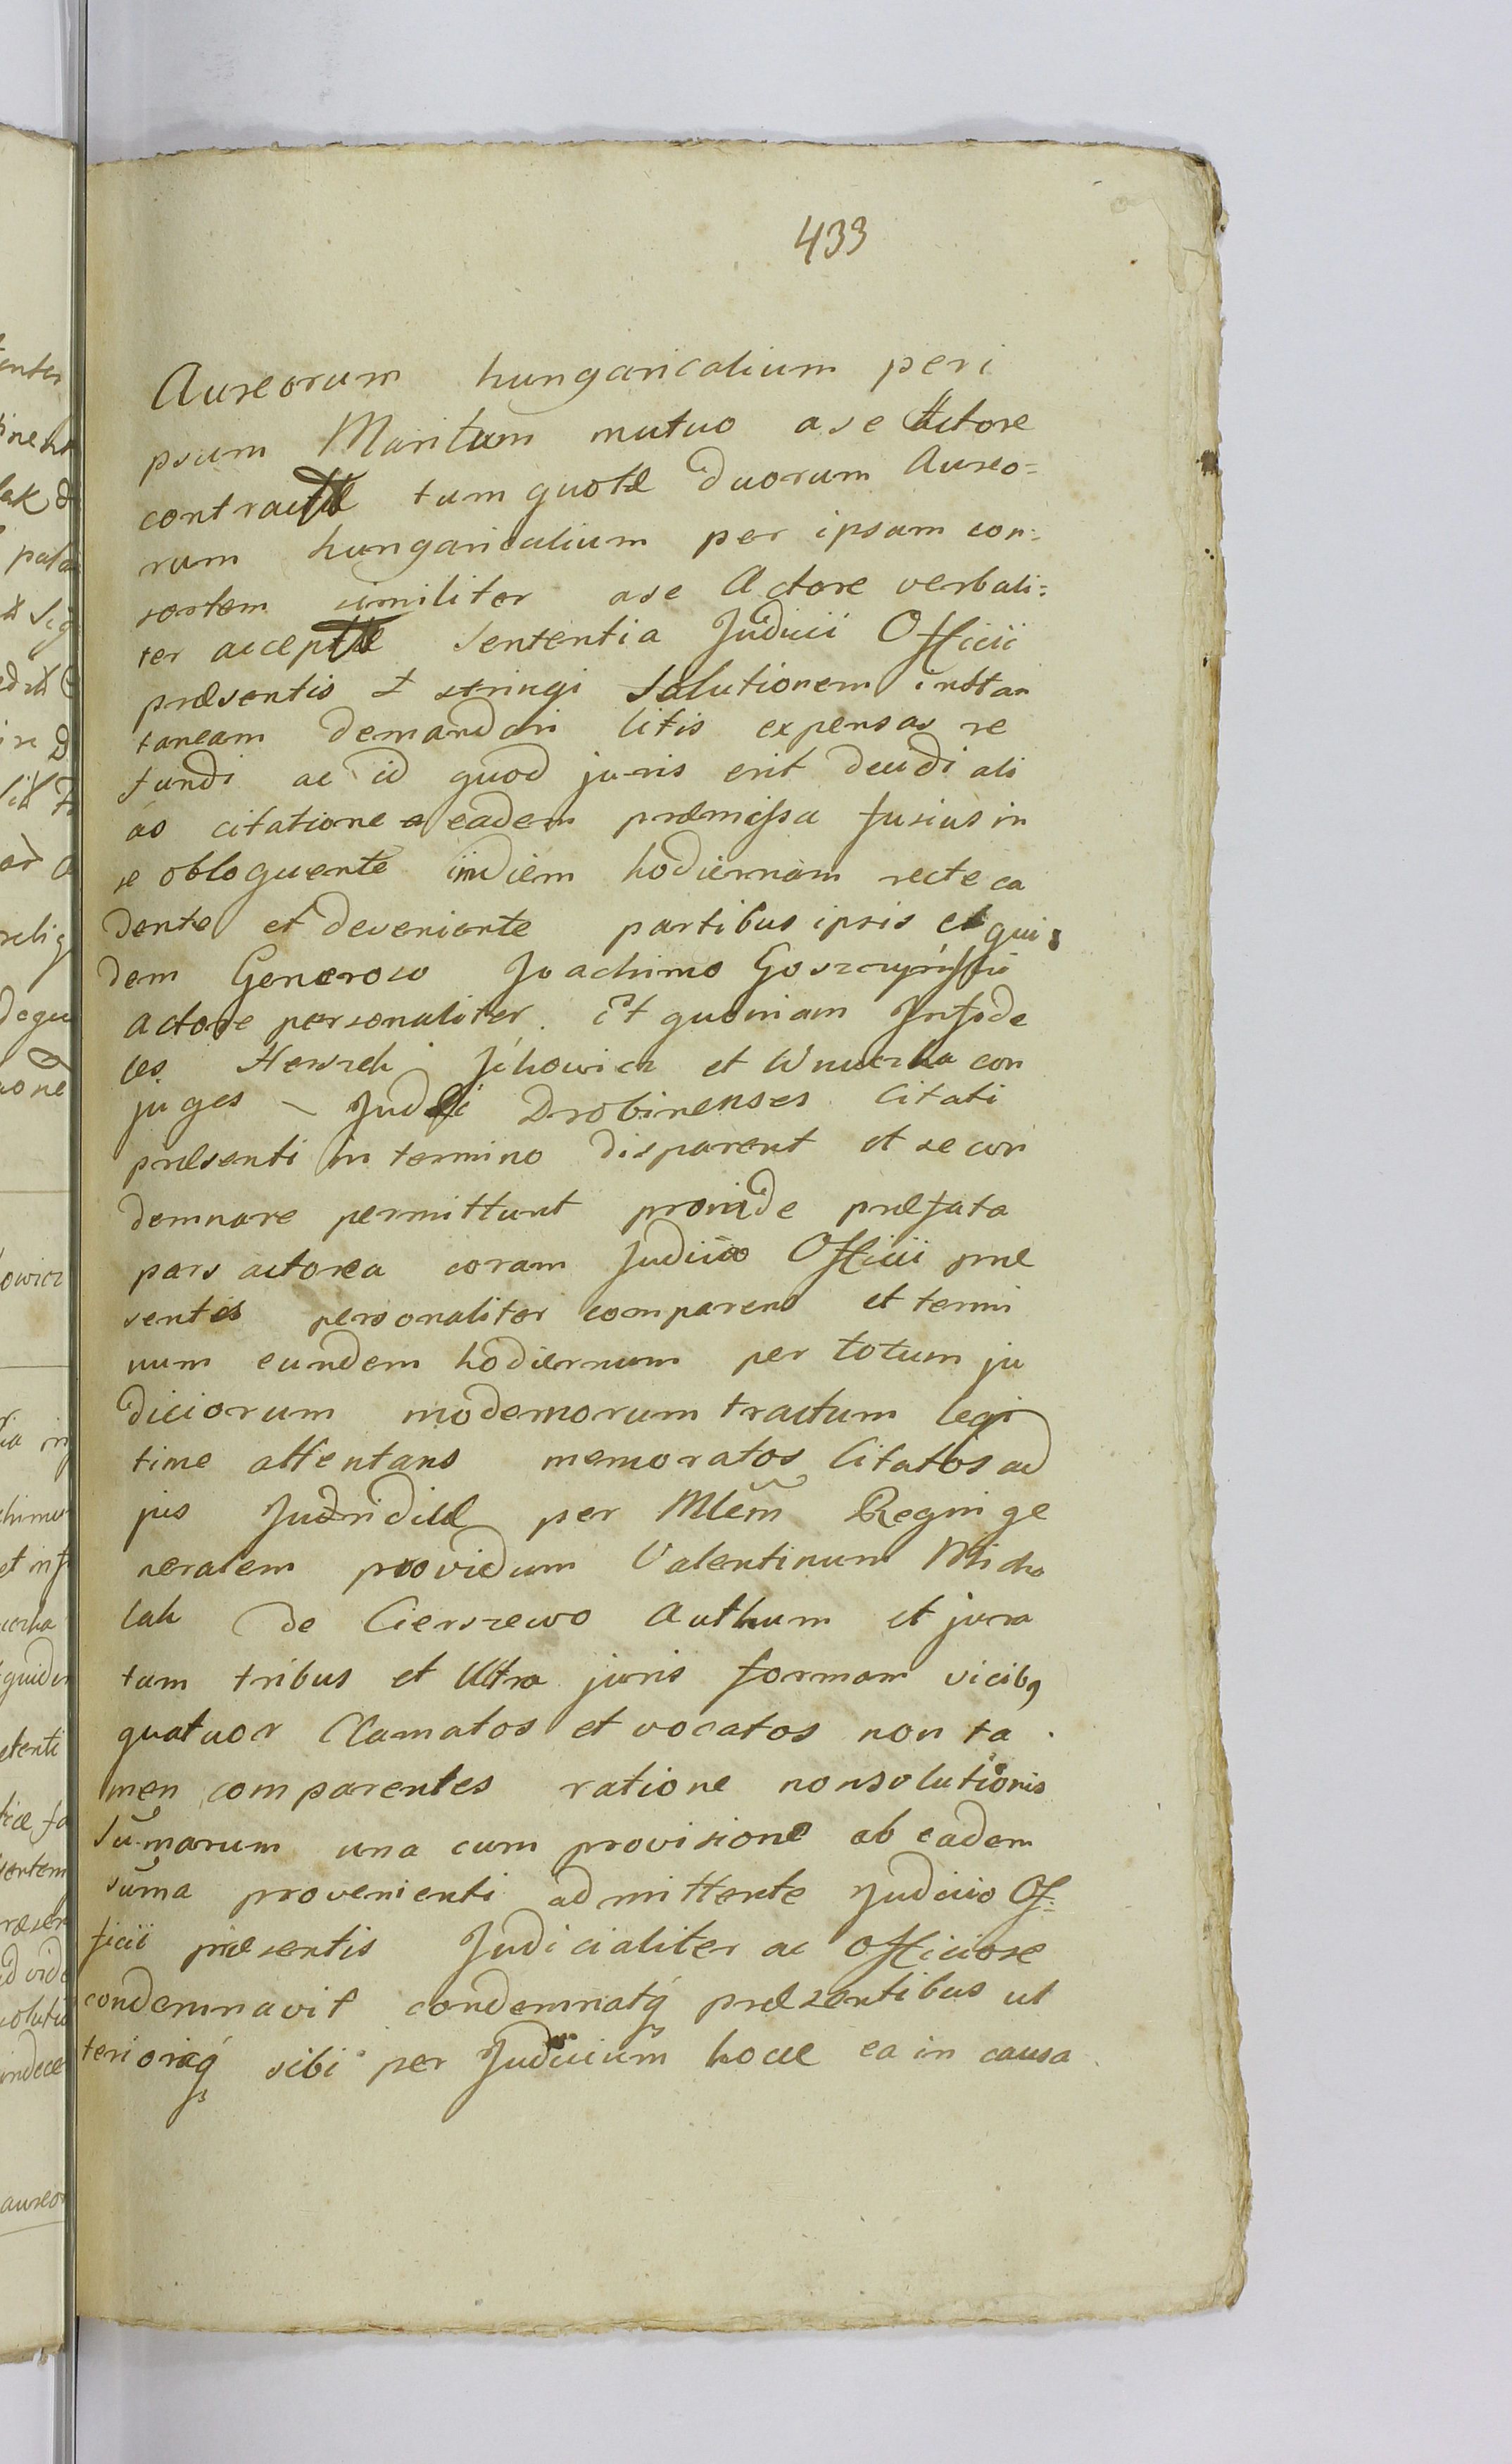 433
Aureorum hungaricalium peri
psum Maritum mutuo a se Actore
contractæ tum quotæ duorum Aureo=
rum hungaricalium per ipsam con=
sortem similiter a se Actore verbali=
ter acceptæ Sententia Judicii Officii
præsentis & stringi Solutionem instan
taneam demandari litis expensas re
fundi ac id quod juris erit decidi ali
as citatione eadem præmissa fusius in
se obloquente in diem hodiernam recte ca
dente et deveniente partibus ipsis et qui
dem Generoso Joachimo
actore personaliter. Et quoniam Infide
les Herszek et con
juges Judæi Drobinenses Citati
præsenti in termino disparent et se con
demnare permittunt proinde præfata
pars actorea coram Judicio Officii præ
sentis personaliter comparens et termi
num eundem hodiernum per totum ju
diciorum modernorum tractum legi
time attentans memoratos Citatos ad
jus per Mlem̃ Regni ge
neralem providum Valentinum Micha
lak de Cierszewo Authum et jura
tum tribus et Ultra juris formam vicibꝰ
quatuor Clamatos et vocatos non ta
men comparentes ratione nonsolutionis
Sum̃arum una cum provisione ab eadem
sum̃a provenienti admittente Judicio Of=
ficii præsentis Judicialiter ac Officiose
condemnavit condemnatq præsentibus ul
terioriq sibi per Judicium hocce ea in causa
enter
pala
sig
relig
degu
owicz
chimo
et inf
quidem
etenti
sertem
ad vide
solutio
aureor